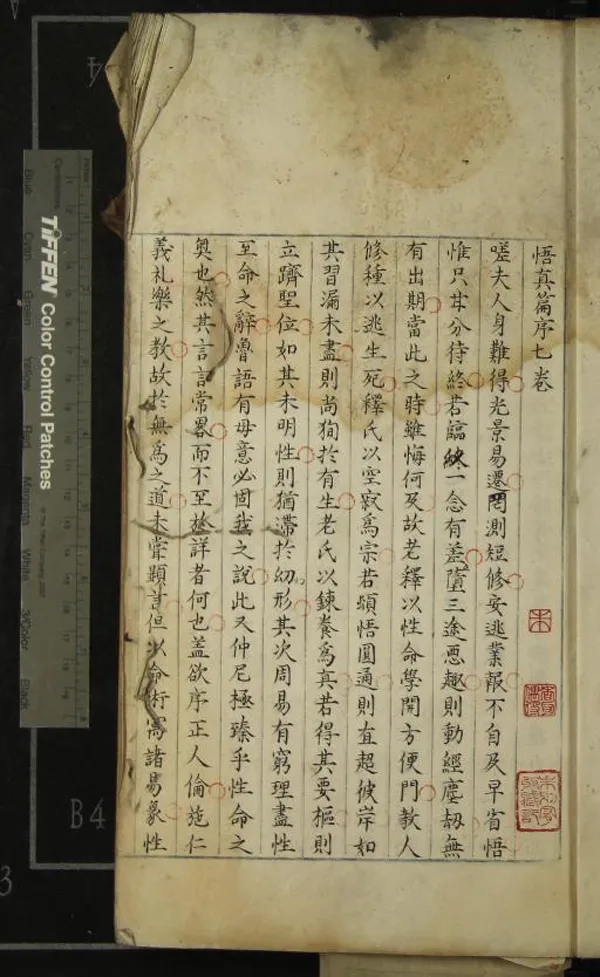 悟真篇序七卷
嗟夫人身難得光景易遷罔測短修安逃業報不自及早省悟
惟只甘分待終若臨終一念有差墮三途惡趣則動經塵劫無
有出期當此之時雖悔何及故老釋以性命學開方便門教人
修種以逃生死釋氏以空寂爲宗若頓悟圓通則直超彼岸如
其習漏未盡則尚狥於有生老氏以鍊養爲真若得其要樞則
立躋聖位如其未明性則猶滯於幻形其次周易有窮理盡性
至命之辭魯語有毋意必固我之說此又仲尼極臻乎性命之
奥也然其言言常畧而不至於詳者何也蓋欲序正人倫施仁
義礼樂之教故於無爲之道未甞顯言但以命術寓諸易象性
TIFFEN Color Control Patches
Blue
Cyan
Green
Yellow
Red
Magenta
White
3/Color
Black
Centimetres
B4
4
3